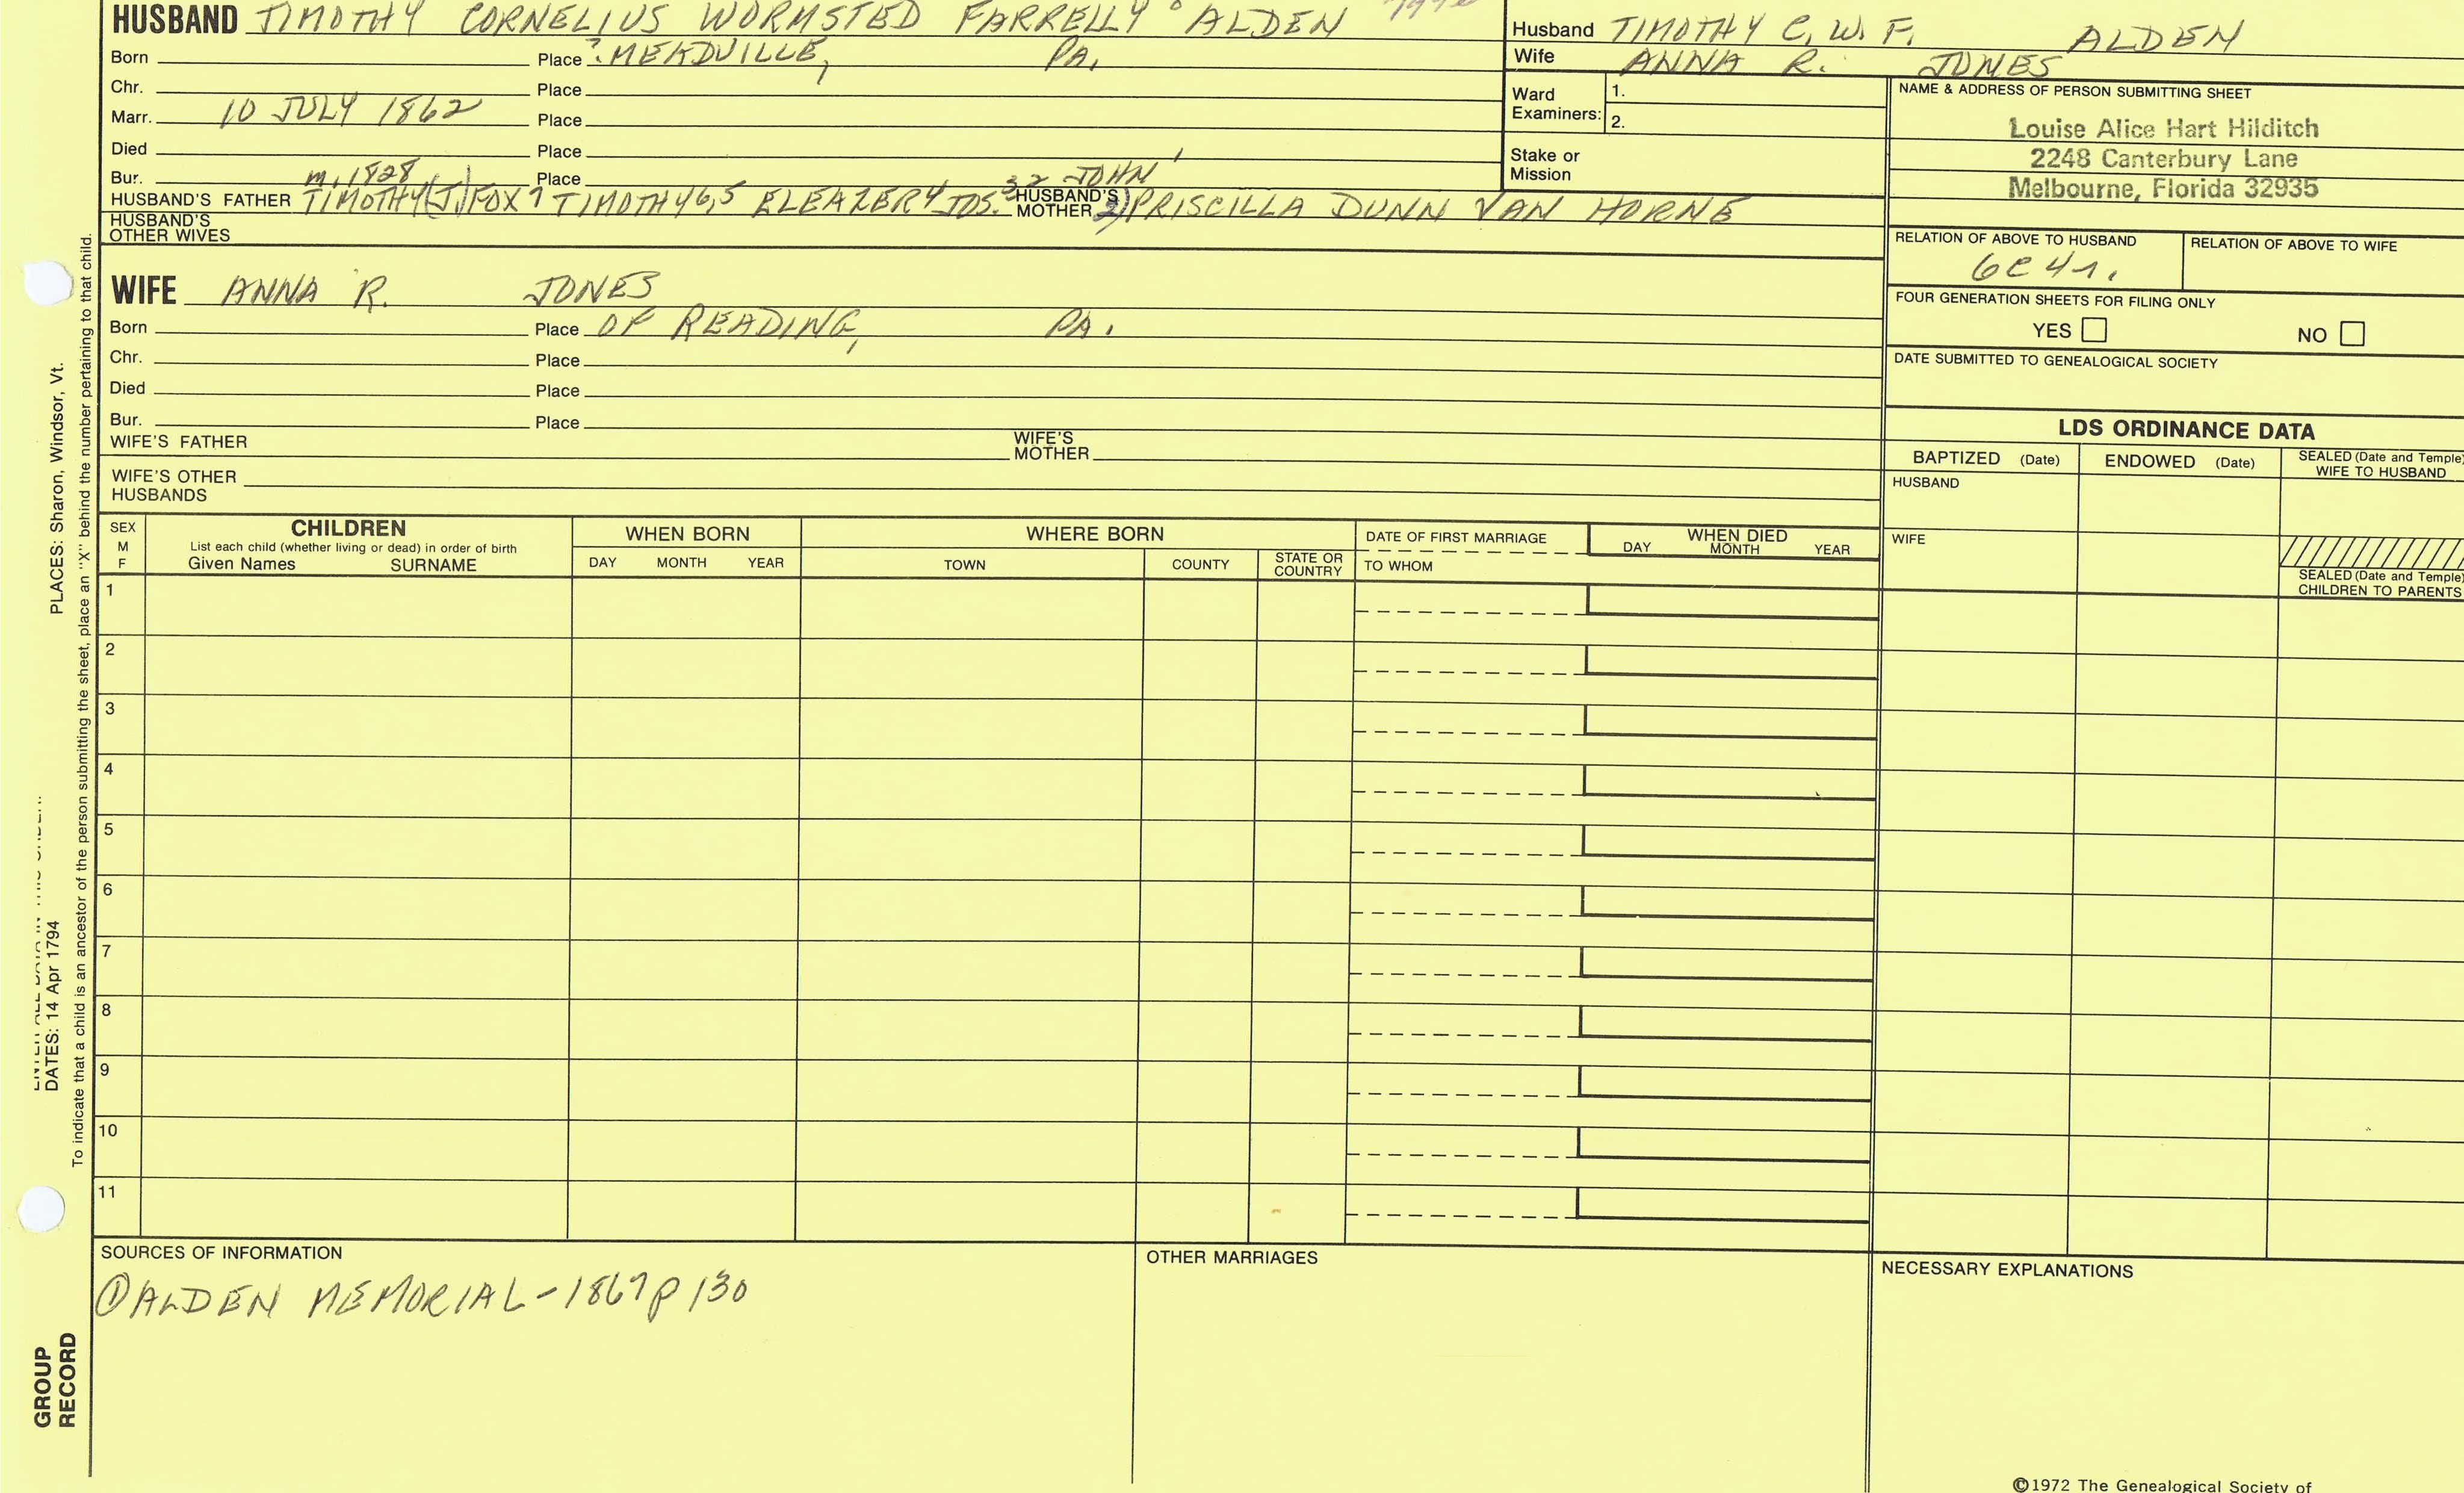 HUSBAND TIMOTHY CORNELIUS WORMSTED FARRELLY ALDEN
Born Place ? MEADVILLE, PA.
Chr. Place
Marr. 10 JULY 1862 Place
Died Place
Bur. m. 1828 Place 32 JOHN 1
HUSBAND'S FATHER TIMOTHY (J) FOX 7 TIMOTHY 6,5 ELEAZER 4 JOS. HUSBAND'S MOTHER 2) PRISCILLA DUNN VAN HORNE
HUSBAND'S OTHER WIVES
Husband TIMOTHY C. W. F. ALDEN
Wife ANNA R. JONES
Ward Examiners: 1.
2.
Stake or Mission
NAME & ADDRESS OF PERSON SUBMITTING SHEET
Louise Alice Hart Hilditch
2248 Canterbury Lane
Melbourne, Florida 32935
RELATION OF ABOVE TO HUSBAND RELATION OF ABOVE TO WIFE
6C 4r.
FOUR GENERATION SHEETS FOR FILING ONLY
YES NO
DATE SUBMITTED TO GENEALOGICAL SOCIETY
WIFE ANNA R. JONES
Born Place OF READING, PA.
Chr. Place
Died Place
Bur. Place
WIFE'S FATHER WIFE'S MOTHER
WIFE'S OTHER HUSBANDS
LDS ORDINANCE DATA
BAPTIZED (Date) ENDOWED (Date) SEALED (Date and Temple) WIFE TO HUSBAND
HUSBAND
WIFE
SEALED (Date and Temple) CHILDREN TO PARENTS
SEX M F
CHILDREN
List each child (whether living or dead) in order of birth
Given Names SURNAME
WHEN BORN
DAY MONTH YEAR
WHERE BORN
TOWN COUNTY STATE OR COUNTRY
DATE OF FIRST MARRIAGE
TO WHOM
WHEN DIED
DAY MONTH YEAR
1
2
3
4
5
6
7
8
9
10
11
SOURCES OF INFORMATION
① ALDEN MEMORIAL-1867 p 130
OTHER MARRIAGES
NECESSARY EXPLANATIONS
©1972 The Genealogical Society of
PLACES: Sharon, Windsor, Vt.
DATES: 14 Apr 1794
To indicate that a child is an ancestor of the person submitting the sheet, place an "X" behind the number pertaining to that child.
GROUP
RECORD